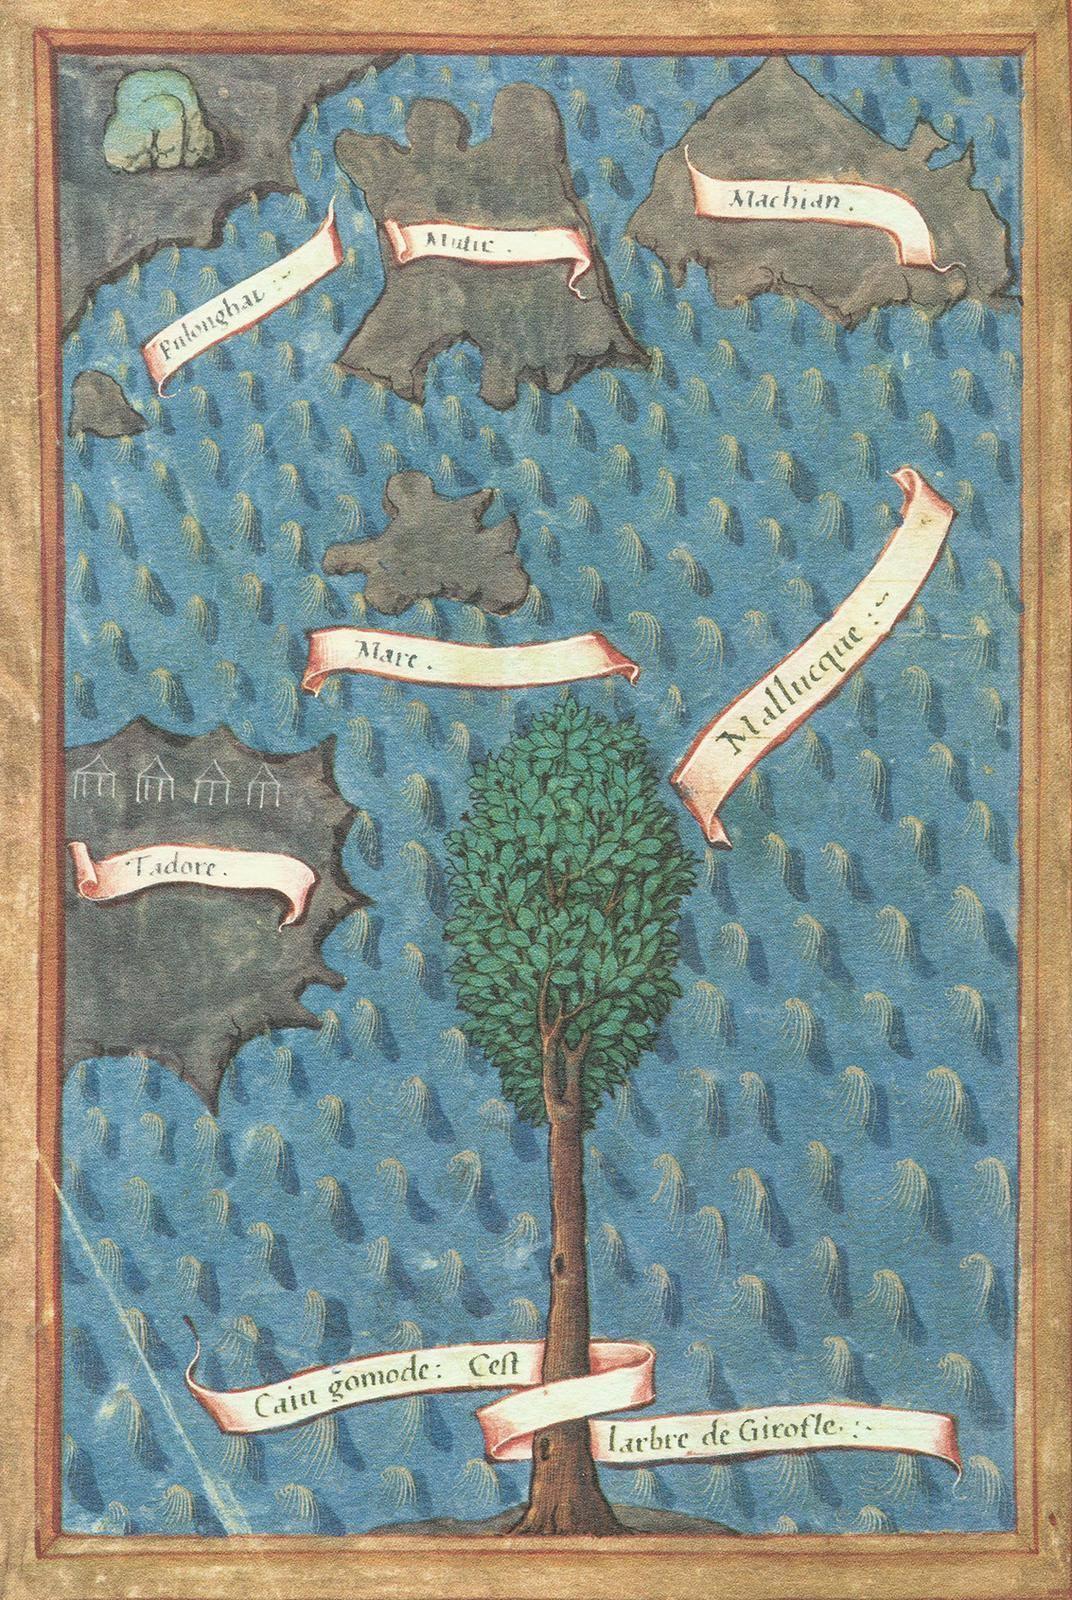 Machian.
Mutir.
Pulonghar :~
Mare.
Mallucque :~
Tadore.
Caiu gomode : Cest
larbre de Girofle :~